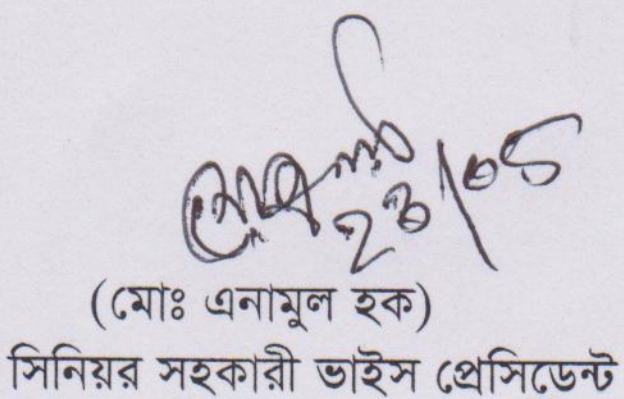 (মোঃ এনামুল হক)
সিনিয়র সহকারী ভাইস প্রেসিডেন্ট